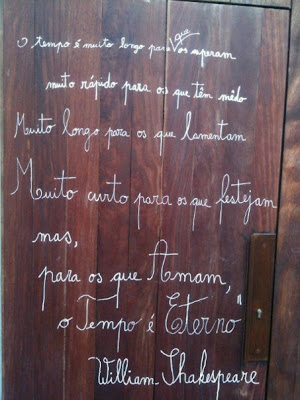 O tempo é muito longo para os que esperam
muito rápido para os que têm mêdo
Muito longo para os que lamentam
Muito curto para os que festejam
mas,
para os que Amam,
o Tempo é Eterno"
William Shakespeare